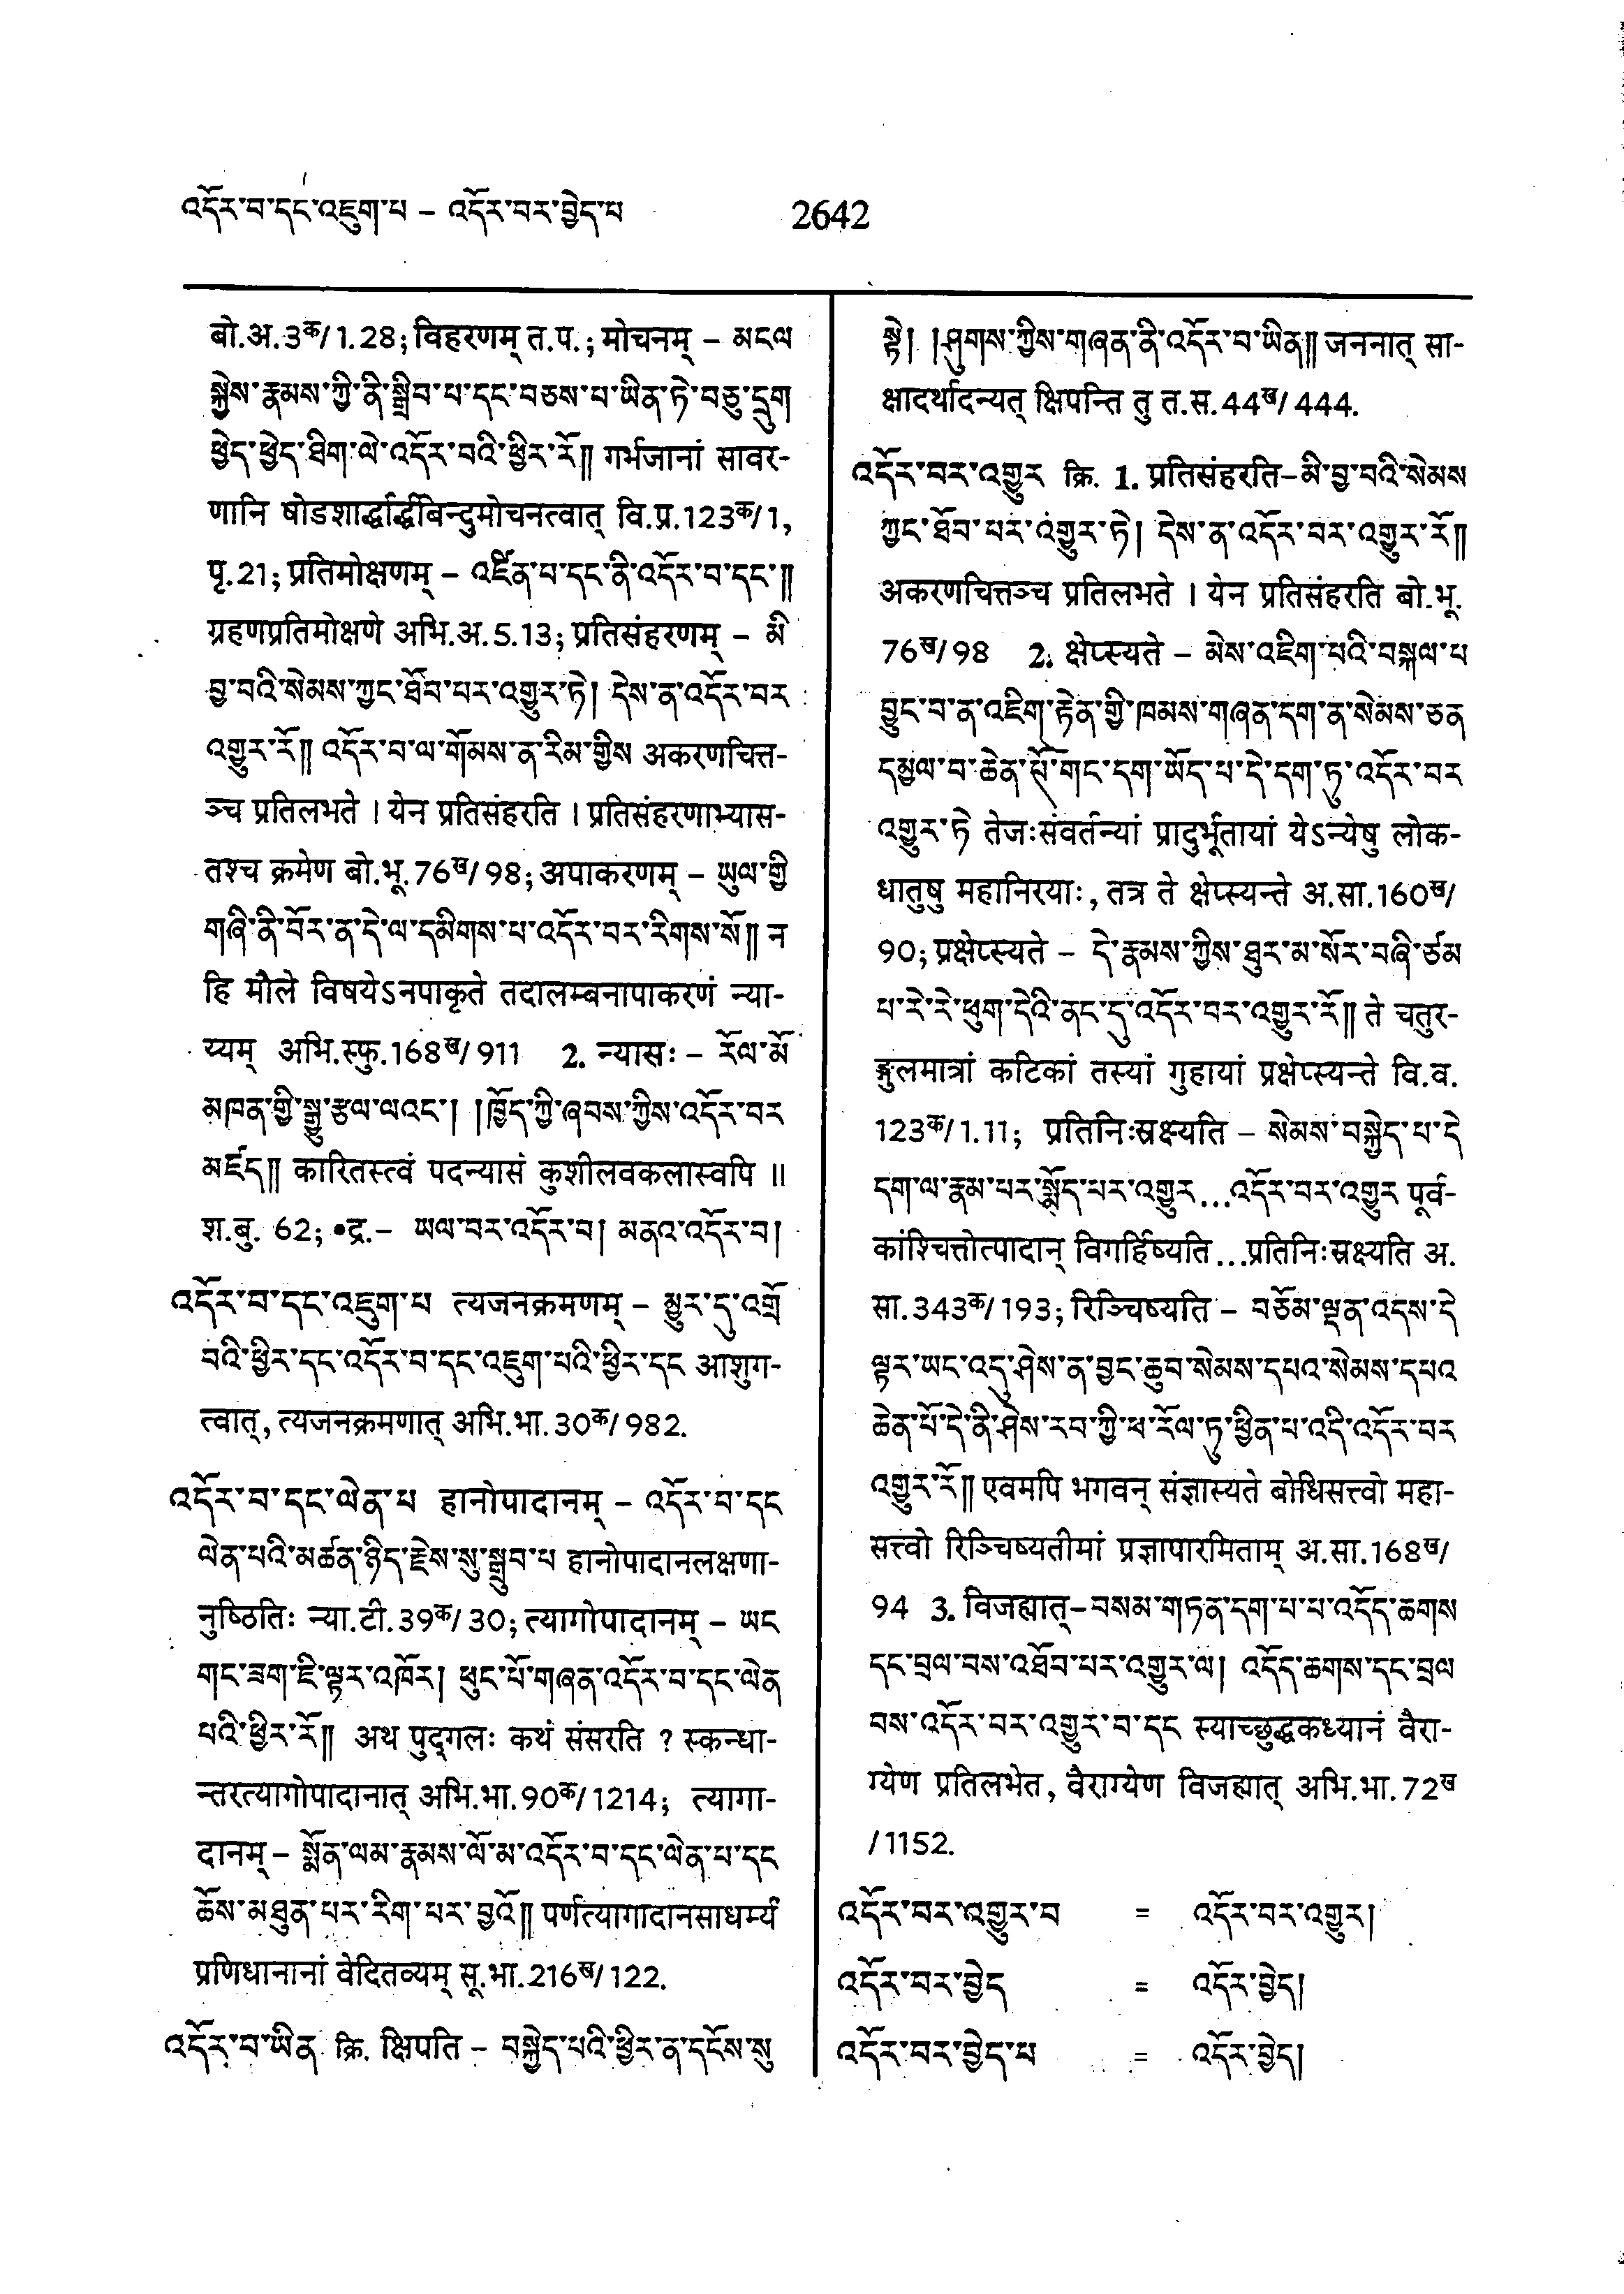 འདོར་བ་དང་འཇུག་པ – འདོར་བར་བྱེད་པ
2642
बो.अ.3क/1.28; विहरणम् त.प.; मोचनम् – མངལ
སྐྱེས་རྣམས་ཀྱི་ནི་སྒྲིབ་པ་དང་བཅས་པ་ཡིན་ཏེ་བཅུ་དྲུག
ཕྱེད་ཕྱེད་ཐིག་ལེ་འདོར་བའི་ཕྱིར་རོ༎ गर्भजानां सावर-
णानि षोडशार्द्धार्द्धबिन्दुमोचनत्वात् वि.प्र.123क/1,
पृ.21; प्रतिमोक्षणम् – འཛིན་པ་དང་ནི་འདོར་བ་དང་༎
ग्रहणप्रतिमोक्षणे अभि.अ.5.13; प्रतिसंहरणम् – མི
བྱ་བའི་སེམས་ཀྱང་ཐོབ་པར་འགྱུར་ཏེ། དེས་ན་འདོར་བར
འགྱུར་རོ༎ འདོར་བ་ལ་གོམས་ན་རིམ་གྱིས अकरणचित्त-
ञ्च प्रतिलभते । येन प्रतिसंहरति । प्रतिसंहरणाभ्यास-
तश्च क्रमेण बो.भू.76ख/98; अपाकरणम् – ཡུལ་གྱི
གཞི་ནི་བོར་ན་དེ་ལ་དམིགས་པ་འདོར་བར་རིགས་སོ༎ न
हि मौले विषयेऽनपाकृते तदालम्बनापाकरणं न्या-
य्यम् अभि.स्फु.168ख/911 2. न्यासः – རོལ་མོ
མཁན་གྱི་སྒྱུ་རྩལ་ལའང་། །ཁྱོད་ཀྱི་ཞབས་ཀྱིས་འདོར་བར
མཛད༎ कारितस्त्वं पदन्यासं कुशीलवकलास्वपि ॥
श.बु. 62; •द्र.– ཡལ་བར་འདོར་བ། མནའ་འདོར་བ།
འདོར་བ་དང་འཇུག་པ त्यजनक्रमणम् – མྱུར་དུ་འགྲོ
བའི་ཕྱིར་དང་འདོར་བ་དང་འཇུག་པའི་ཕྱིར་དང आशुग-
त्वात्, त्यजनक्रमणात् अभि.भा.30क/982.
འདོར་བ་དང་ལེན་པ हानोपादानम् – འདོར་བ་དང
ལེན་པའི་མཚན་ཉིད་རྗེས་སུ་སྒྲུབ་པ हानोपादानलक्षणा-
नुष्ठितिः न्या.टी.39क/30; त्यागोपादानम् – ཡང
གང་ཟག་ཇི་ལྟར་འཁོར། ཕུང་པོ་གཞན་འདོར་བ་དང་ལེན
པའི་ཕྱིར་རོ༎ अथ पुद्गलः कथं संसरति ? स्कन्धा-
न्तरत्यागोपादानात् अभि.भा.90क/1214; त्यागा-
दानम् – སྨོན་ལམ་རྣམས་ལོ་མ་འདོར་བ་དང་ལེན་པ་དང
ཆོས་མཐུན་པར་རིག་པར་བྱའོ༎ पर्णत्यागादानसाधर्म्यं
प्रणिधानानां वेदितव्यम् सू.भा.216ख/122.
འདོར་བ་ཡིན क्रि. क्षिपति – བསྐྱེད་པའི་ཕྱིར་ན་དངོས་སུ
སྟེ། །ཤུགས་ཀྱིས་གཞན་ནི་འདོར་བ་ཡིན༎ जननात् सा-
क्षादर्थादन्यत् क्षिपन्ति तु त.स.44ख/444.
འདོར་བར་འགྱུར क्रि. 1. प्रतिसंहरति–མི་བྱ་བའི་སེམས
ཀྱང་ཐོབ་པར་འགྱུར་ཏེ། དེས་ན་འདོར་བར་འགྱུར་རོ༎
अकरणचित्तञ्च प्रतिलभते । येन प्रतिसंहरति बो.भू.
76ख/98 2. क्षेप्स्यते – མེས་འཇིག་པའི་བསྐལ་པ
བྱུང་བ་ན་འཇིག་རྟེན་གྱི་ཁམས་གཞན་དག་ན་སེམས་ཅན
དམྱལ་བ་ཆེན་པོ་གང་དག་ཡོད་པ་དེ་དག་ཏུ་འདོར་བར
འགྱུར་ཏེ तेजःसंवर्तन्यां प्रादुर्भूतायां येऽन्येषु लोक-
धातुषु महानिरयाः, तत्र ते क्षेप्स्यन्ते अ.सा.160ख/
90; प्रक्षेप्स्यते – དེ་རྣམས་ཀྱིས་ཐུར་མ་སོར་བཞི་ཙམ
པ་རེ་རེ་ཕུག་དེའི་ནང་དུ་འདོར་བར་འགྱུར་རོ༎ ते चतुर-
ङ्गुलमात्रां कटिकां तस्यां गुहायां प्रक्षेप्स्यन्ते वि.व.
123क/1.11; प्रतिनिःस्रक्ष्यति – སེམས་བསྐྱེད་པ་དེ
དག་ལ་རྣམ་པར་སྨོད་པར་འགྱུར...འདོར་བར་འགྱུར पूर्व-
कांश्चित्तोत्पादान् विगर्हिष्यति...प्रतिनिःस्रक्ष्यति अ.
सा.343क/193; रिञ्चिष्यति – བཅོམ་ལྡན་འདས་དེ
ལྟར་ཡང་འདུ་ཤེས་ན་བྱང་ཆུབ་སེམས་དཔའ་སེམས་དཔའ
ཆེན་པོ་དེ་ནི་ཤེས་རབ་ཀྱི་ཕ་རོལ་ཏུ་ཕྱིན་པ་འདི་འདོར་བར
འགྱུར་རོ༎ एवमपि भगवन् संज्ञास्यते बोधिसत्त्वो महा-
सत्त्वो रिञ्चिष्यतीमां प्रज्ञापारमिताम् अ.सा.168ख/
94 3. विजह्यात्–བསམ་གཏན་དག་པ་པ་འདོད་ཆགས
དང་བྲལ་བས་འཐོབ་པར་འགྱུར་ལ། འདོད་ཆགས་དང་བྲལ
བས་འདོར་བར་འགྱུར་བ་དང स्याच्छुद्धकध्यानं वैरा-
ग्येण प्रतिलभेत, वैराग्येण विजह्यात् अभि.भा.72ख
/1152.
འདོར་བར་འགྱུར་བ = འདོར་བར་འགྱུར།
འདོར་བར་བྱེད = འདོར་བྱེད།
འདོར་བར་བྱེད་པ = འདོར་བྱེད།